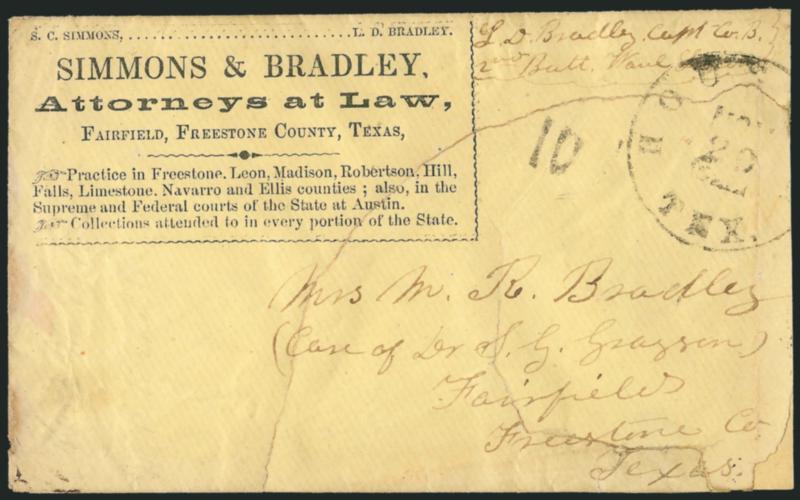 S. C. SIMMONS, . . . . . . . . . . . . . . . . . . . . . . . . . . . . L. D. BRADLEY.
SIMMONS & BRADLEY,
Attorneys at Law,
FAIRFIELD, FREESTONE COUNTY, TEXAS,
Practice in Freestone. Leon, Madison, Robertson, Hill,
Falls, Limestone. Navarro and Ellis counties ; also, in the
Supreme and Federal courts of the State at Austin.
Collections attended to in every portion of the State.
L D Bradley, Capt Co. B.
2nd Batt. Waul
10
TEX.
Mrs M. R. Bradley
(Care of Dr S. G. Grayson)
Fairfield
Freestone Co
Texas.